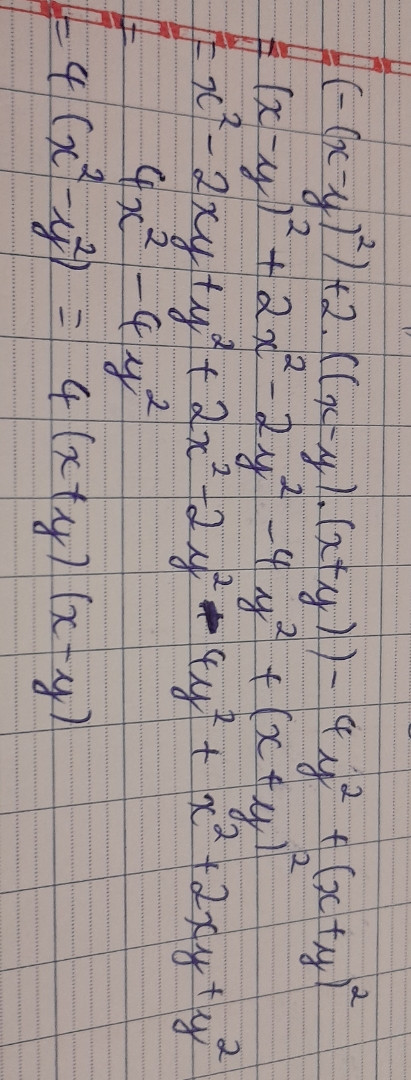 (-(x-y)²)+2.((x-y).(x+y))-4y²+(x+y)²
= (x-y)²+2x²-2y²-4y²+(x+y)²
= x²-2xy+y²+2x²-2y²-4y²+x²+2xy+y²
= 4x²-4y²
= 4(x²-y²) = 4(x+y)(x-y)